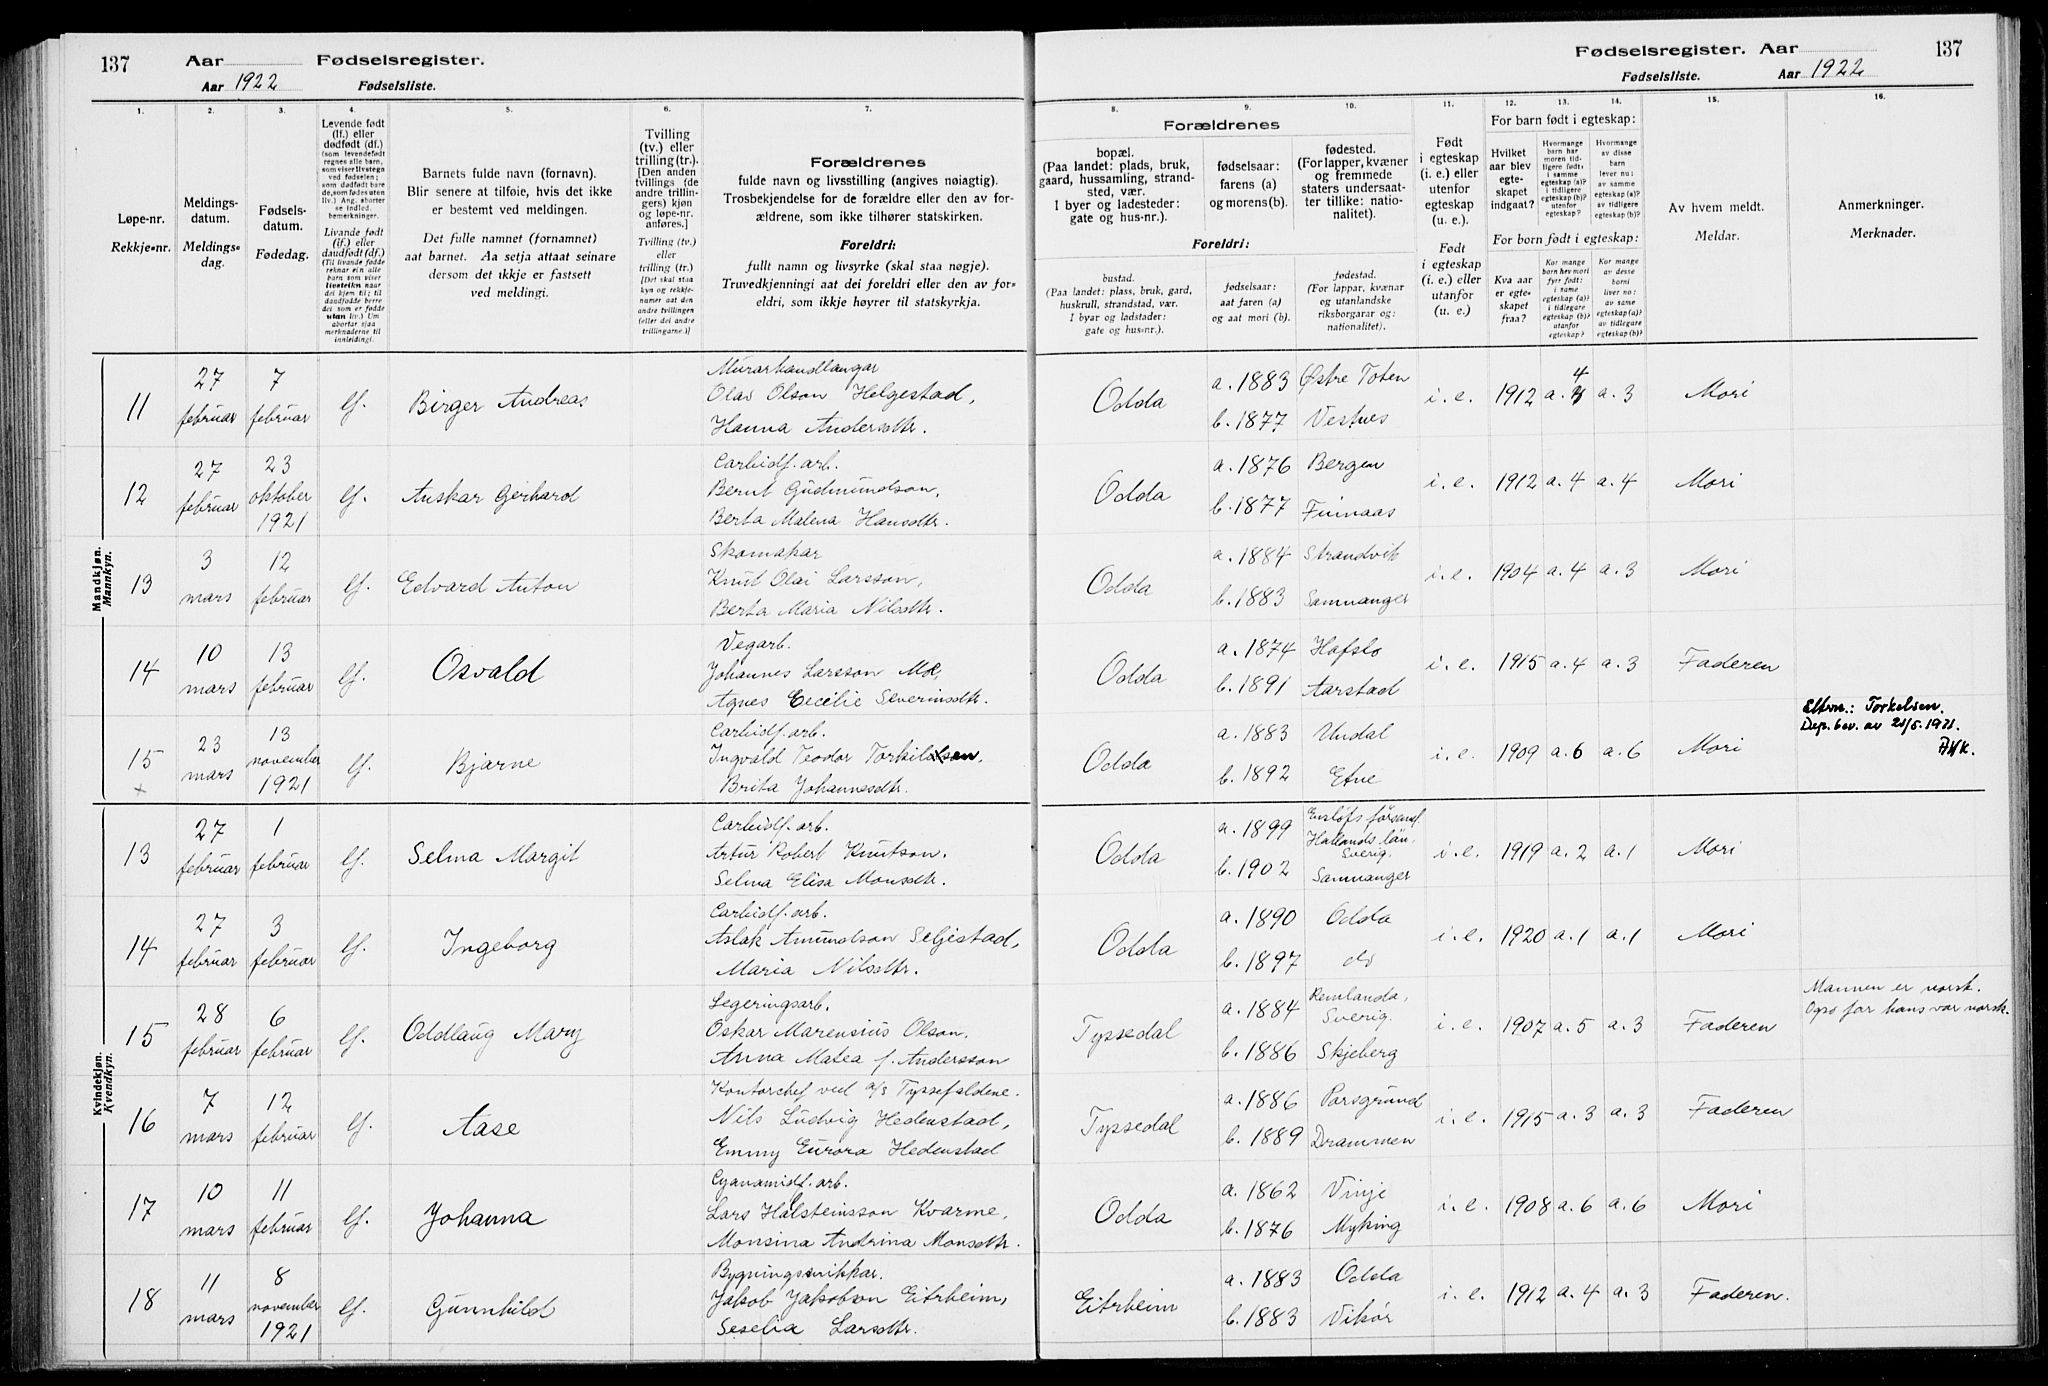 137 Aar Fødselsregister.
Aar 1922 Fødselsliste.
Fødselsregister. Aar 137
Fødselsliste. Aar 1922
1. 2. 3. 4. 5. 6. 7.
Løpe-nr.
Rekkje-nr.
Meldings-
datum.
Meldings-
dag.
Fødsels-
datum.
Fødedag.
Levende født
(lf.) eller
dødfødt (df.)
(som levendefødt
regnes alle barn,
som viser livstegn
ved fødselen;
som dødfødt bare
de, som fødes uten
liv.) Ang. aborter
se indled.
bemerkninger.
Livande født
(lf.) eller
daudfødt (df.)
(Til livande fødde
reknar ein alle
barn som viser
livsteikn naar
dei kjem til; til
daudfødde berre
dei som er fødde
utan liv.) Um
abortar sjaa
merknaderne til
innleidingi.
Barnets fulde navn (fornavn).
Blir senere at tilføie, hvis det ikke
er bestemt ved meldingen.
Det fulle namnet (fornamnet)
aat barnet. Aa setja attaat seinare
dersom det ikkje er fastsett
ved meldingi.
Tvilling
(tv.) eller
trilling (tr.).
[Den anden
tvillings (de
andre trillin-
gers) kjøn
og løpe-nr.
anføres.]
Tvilling (tv.)
eller
trilling (tr.)
[Det skal staa
kyn og rekkje-
numer aat den
andre tvillingen
(eller dei andre
trillingarne.)]
Forældrenes
fulde navn og livsstilling (angives nøiagtig).
Trosbekjendelse for de forældre eller den av for-
ældrene, som ikke tilhører statskirken.
Foreldri:
fullt namn og livsyrke (skal staa nøgje).
Truvedkjenningi aat dei foreldri eller den av for-
eldri, som ikkje høyrer til statskyrkja.
8. 9. 10. 11. 12. 13. 14. 15. 16.
Forældrenes
bopæl.
(Paa landet: plads, bruk,
gaard, hussamling, strand-
sted, vær.
I byer og ladesteder:
gate og hus-nr.).
fødselsaar:
farens (a)
og morens (b).
fødested.
(For lapper, kvæner
og fremmede
staters undersaat-
ter tillike: natio-
nalitet).
Foreldri:
bustad.
(Paa landet: plass, bruk, gard,
huskrull, strandstad, vær.
I byar og ladstader:
gate og hus-nr.).
fødselsaar:
aat faren (a)
og aat mori (b).
fødestad.
(For lappar, kvænar
og utanlandske
riksborgarar og:
nationalitet).
Født
i egteskap
(i. e.) eller
utenfor
egteskap
(u. e.).
Født
i egteskap
(i. e.) eller
utanfor
(u. e.)
For barn født i egteskap:
Hvilket
aar blev
egte-
skapet
indgaat?
Hvormange
barn har
moren tid-
ligere født:
i samme
egteskap (a)?
i tidligere
egteskap (b)?
utenfor
egteskap?
Hvormange
av disse
barn
lever nu:
av samme
egteskap (a)?
av tidligere
egteskap (b)?
For born født i egteskap:
Kva aar
er egte-
skapet
fraa?
Kor mange
born hev mori
fyrr født:
i same
egteskap (a)?
i tidlegare
egteskap (b)?
utanfor
egteskap?
Kor mange
av desse
borni
liver no:
av same
egteskap (a)?
av tidlegare
egteskap (b)?
Av hvem meldt.
Meldar.
Anmerkninger.
Merknader.
Mandkjøn.
Mannkyn.
11 27 februar 7 februar lf. Birger Andreas
Murarhandlangar
Olav Olson Helgestad,
Hanna Andersdtr.
Odda a. 1883 Østre Toten i. e. 1912 a. 4 a. 3 Mori
b. 1877 Vestnes
12 27 februar 23 oktober 1921 lf. Anskar Gerhard
Carbidf. arb.
Bernt Gudmundson,
Berta Malena Hansdtr.
Odda a. 1876 Bergen i. e. 1912 a. 4 a. 4 Mori
b. 1877 Finnaas
13 3 mars 12 februar lf. Edvard Anton
Skomakar
Knut Olai Larsson,
Berta Maria Nilsdtr.
Odda a. 1884 Strandvik i. e. 1904 a. 4 a. 3 Mori
b. 1883 Samnanger
14 10 mars 13 februar lf. Osvald
Vegarb.
Johannes Larsson Mo,
Agnes Cecilie Severinsdtr.
Odda a. 1874 Hafslo i. e. 1915 a. 4 a. 3 Faderen
b. 1891 Aarstad
15 23 mars 13 november 1921 lf. Bjarne
x
Carbidf. arb.
Ingvald Teodor Torkilsen,
Brita Johannesdtr.
Odda a. 1883 Undal i. e. 1909 a. 6 a. 6 Mori
b. 1892 Etne
Ettvn.: Torkelsen.
Dep. bev. av 21/5. 1971.
Kvindekjøn.
Kvendkyn.
13 27 februar 1 februar lf. Selma Margit
Carbidf. arb.
Artur Robert Knutson.
Selma Elisa Monsdtr.
Odda a. 1899 Enslöfs församl Hallands län, Sverig. i. e. 1919 a. 2 a. 1 Mori
b. 1902 Samnanger
14 27 februar 3 februar lf. Ingeborg
Carbidf. arb.
Aslak Amundson Seljestad,
Maria Nilsdtr.
Odda a. 1890 Odda i. e. 1920 a. 1 a. 1 Mori
b. 1897 do
15 28 februar 6 februar lf. Oddlaug Mary
Legeringsarb.
Oskar Marensius Olson,
Anna Matea f. Andersson
Tyssedal a. 1884 Remlanda, Sverig. i. e. 1907 a. 5 a. 3 Faderen
b. 1886 Skjeberg
Mannen er norsk.
Ogso far hans var norsk.
16 7 mars 12 februar lf. Aase
Kontorchef ved a/s Tyssefaldene.
Nils Ludvig Hedenstad,
Emmy Eurora Hedenstad
Tyssedal a. 1886 Porsgrund i. e. 1915 a. 3 a. 3 Faderen
b. 1889 Drammen
17 10 mars 11 februar lf. Johanna
Cyanamidf. arb.
Lars Halsteinsson Kvarme,
Monsina Andrina Monsdtr.
Odda a. 1862 Vinje i. e. 1908 a. 6 a. 6 Mori
b. 1876 Myking
18 11 mars 8 november 1921 lf. Gunnhild
Bygningssnikkar.
Jakob Jakobson Eitrheim,
Seselia Larsdtr.
Eitrheim a. 1883 Odda i. e. 1912 a. 4 a. 3 Faderen.
b. 1883 Vikör